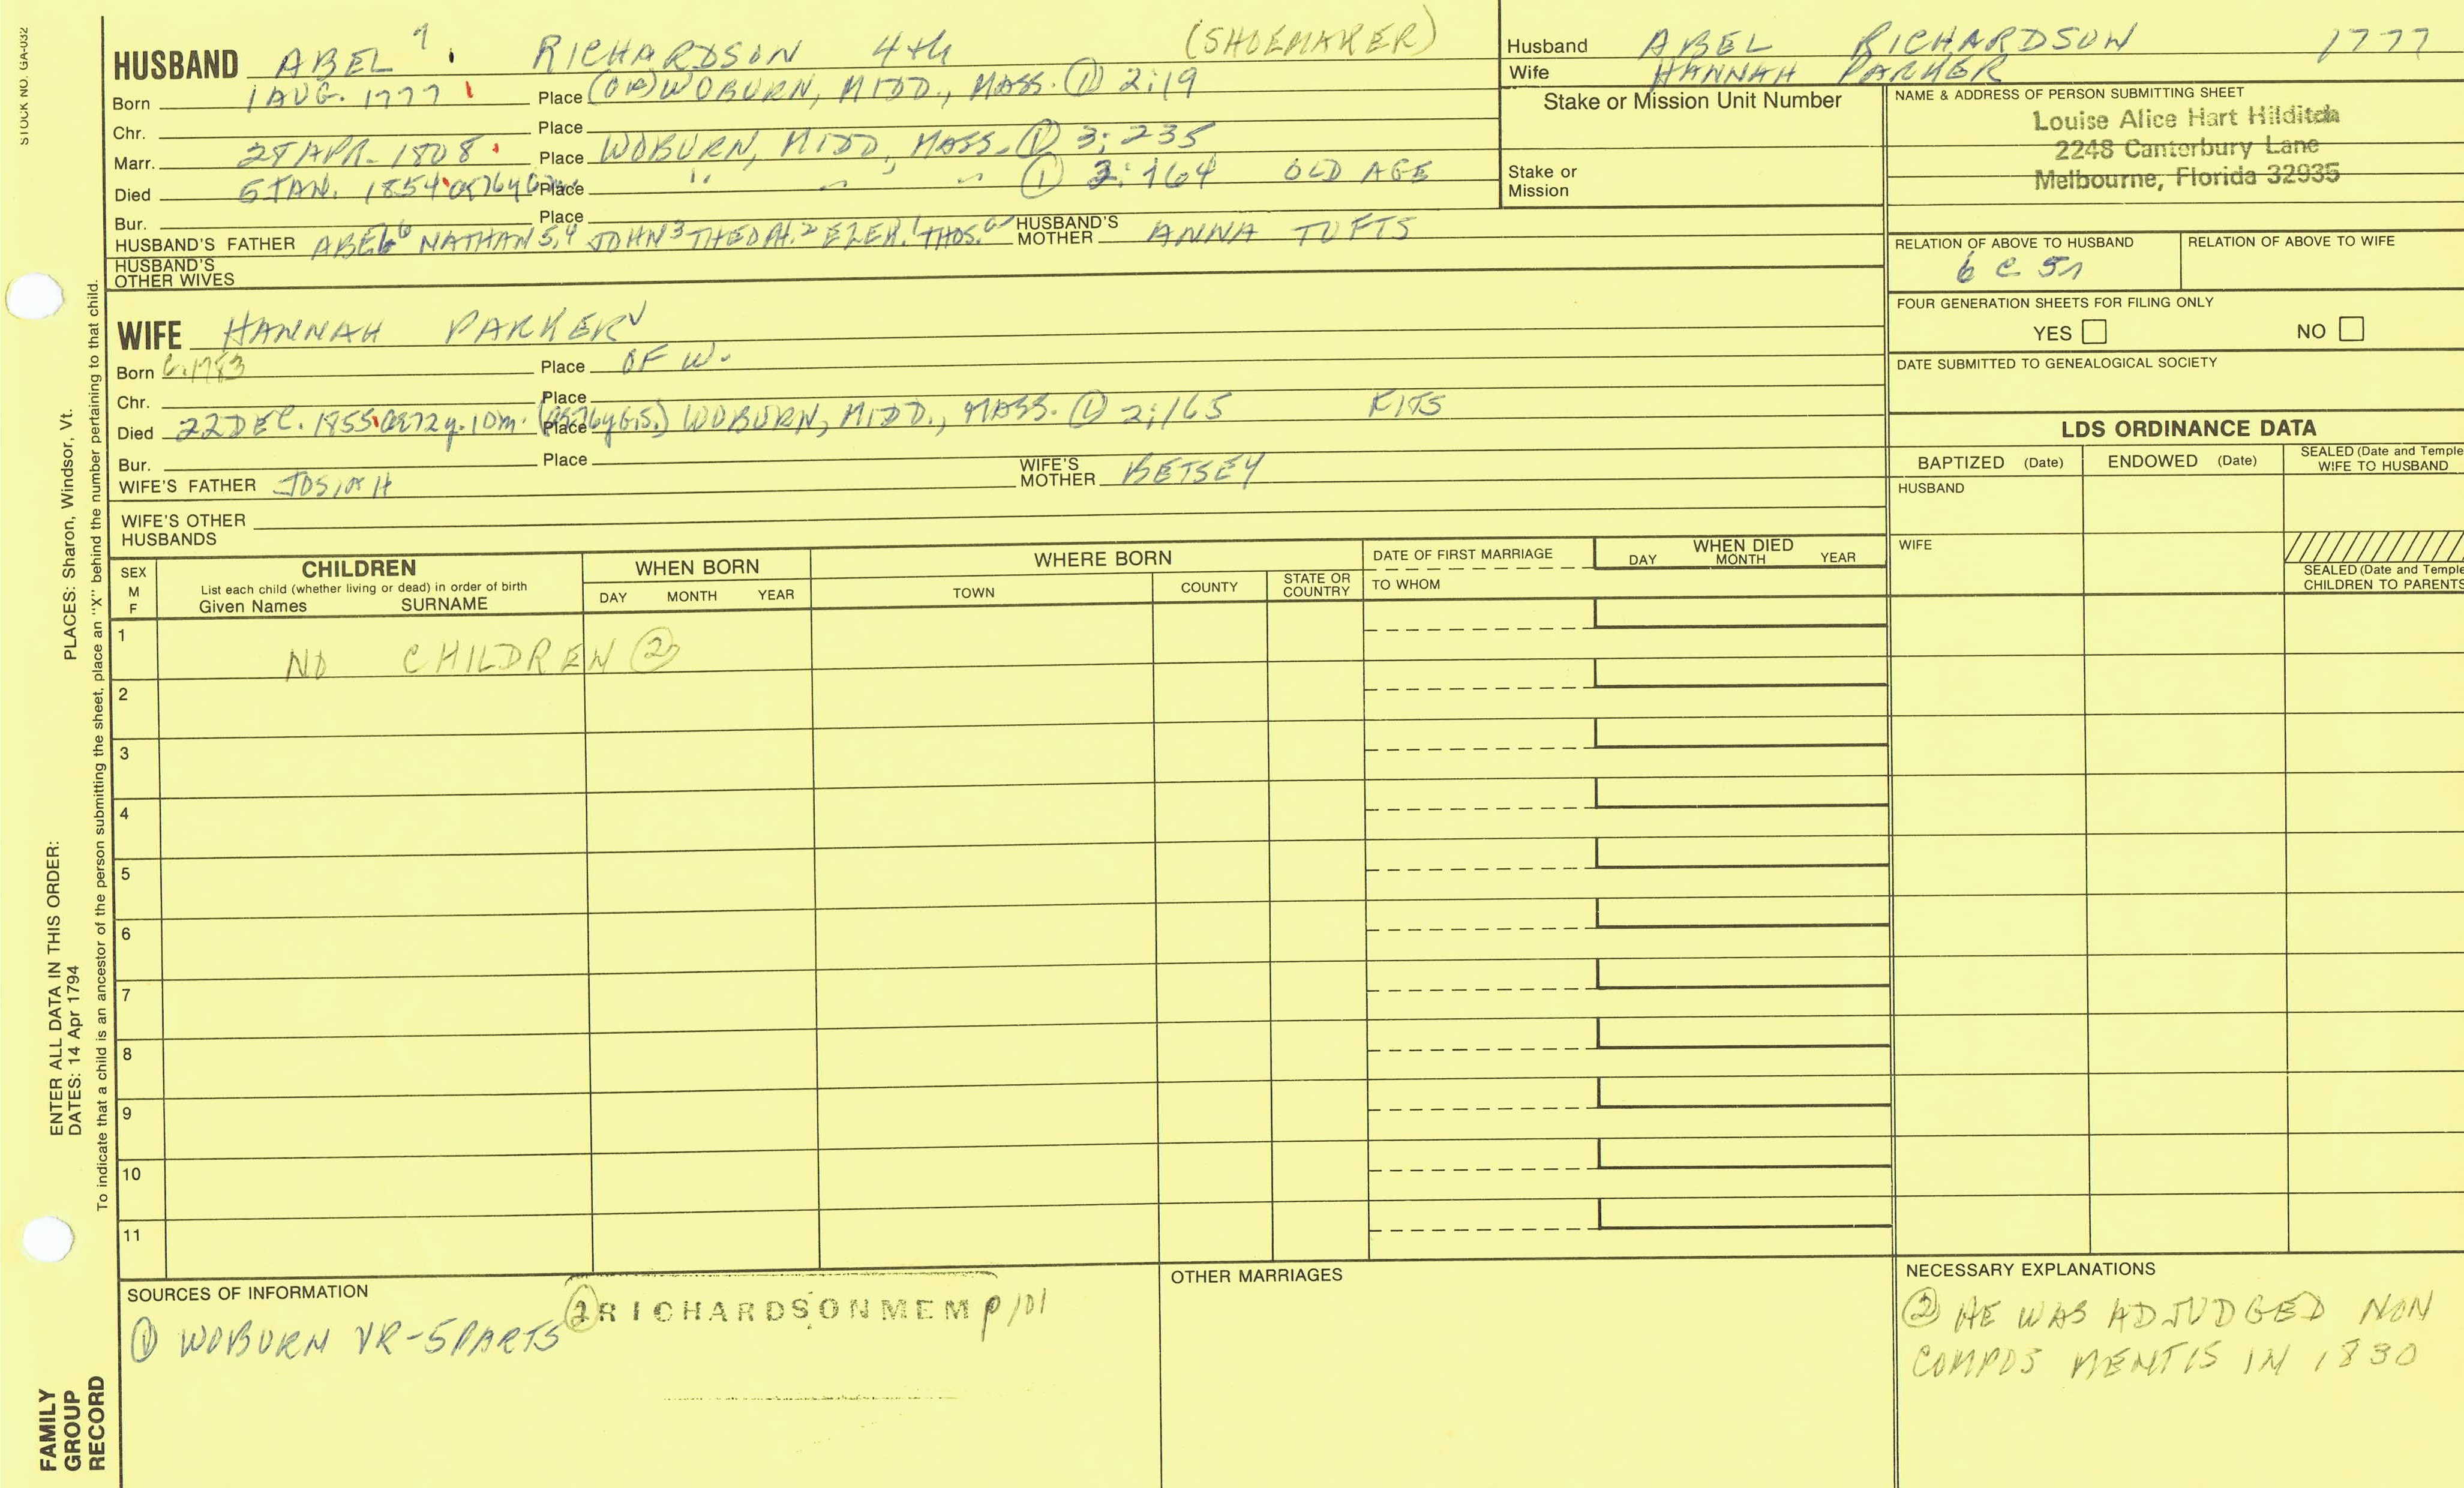 STOCK NO. GA-032
HUSBAND ABEL 7. RICHARDSON 4th (SHOEMAKER)
Born 1 AUG. 1777 Place (OR) WOBURN, MIDD., MASS. ① 2:19
Chr. Place
Marr. 28 APR. 1808 Place WOBURN, MIDD., MASS. ① 3:235
Died 6 JAN. 1854 Place " " " ① 2:164 OLD AGE
Bur. Place
HUSBAND'S FATHER ABEL 6 NATHAN 5,4 JOHN 3 THEOPH. 2 EZEK. 1 THOS. 0 HUSBAND'S MOTHER ANNA TUFTS
HUSBAND'S OTHER WIVES
WIFE HANNAH PARKER
Born C. 1783 Place OF W.
Chr. Place
Died 22 DEC. 1855 ae 72 y. 10 m. (ae 76 y G.S.) Place WOBURN, MIDD., MASS. ① 2:165 FITS
Bur. Place
WIFE'S FATHER JOSIAH WIFE'S MOTHER BETSEY
WIFE'S OTHER HUSBANDS
Husband ABEL RICHARDSON 1777
Wife HANNAH PARKER
Stake or Mission Unit Number
Stake or Mission
NAME & ADDRESS OF PERSON SUBMITTING SHEET
Louise Alice Hart Hilditch
2248 Canterbury Lane
Melbourne, Florida 32935
RELATION OF ABOVE TO HUSBAND RELATION OF ABOVE TO WIFE
6 C 5r
FOUR GENERATION SHEETS FOR FILING ONLY
YES NO
DATE SUBMITTED TO GENEALOGICAL SOCIETY
LDS ORDINANCE DATA
BAPTIZED (Date) ENDOWED (Date) SEALED (Date and Temple
WIFE TO HUSBAND
HUSBAND
WIFE
SEALED (Date and Temple
CHILDREN TO PARENTS
SEX M F
CHILDREN
List each child (whether living or dead) in order of birth
Given Names SURNAME
WHEN BORN
DAY MONTH YEAR
WHERE BORN
TOWN COUNTY STATE OR COUNTRY
DATE OF FIRST MARRIAGE
TO WHOM
WHEN DIED
DAY MONTH YEAR
1 NO CHILDREN ②
2
3
4
5
6
7
8
9
10
11
SOURCES OF INFORMATION
① WOBURN VR-5 PARTS
② RICHARDSON MEM p 101
OTHER MARRIAGES
NECESSARY EXPLANATIONS
② HE WAS ADJUDGED NON
COMPOS MENTIS IN 1830
PLACES: Sharon, Windsor, Vt.
ENTER ALL DATA IN THIS ORDER:
DATES: 14 Apr 1794
To indicate that a child is an ancestor of the person submitting the sheet, place an "X" behind the number pertaining to that child.
FAMILY
GROUP
RECORD